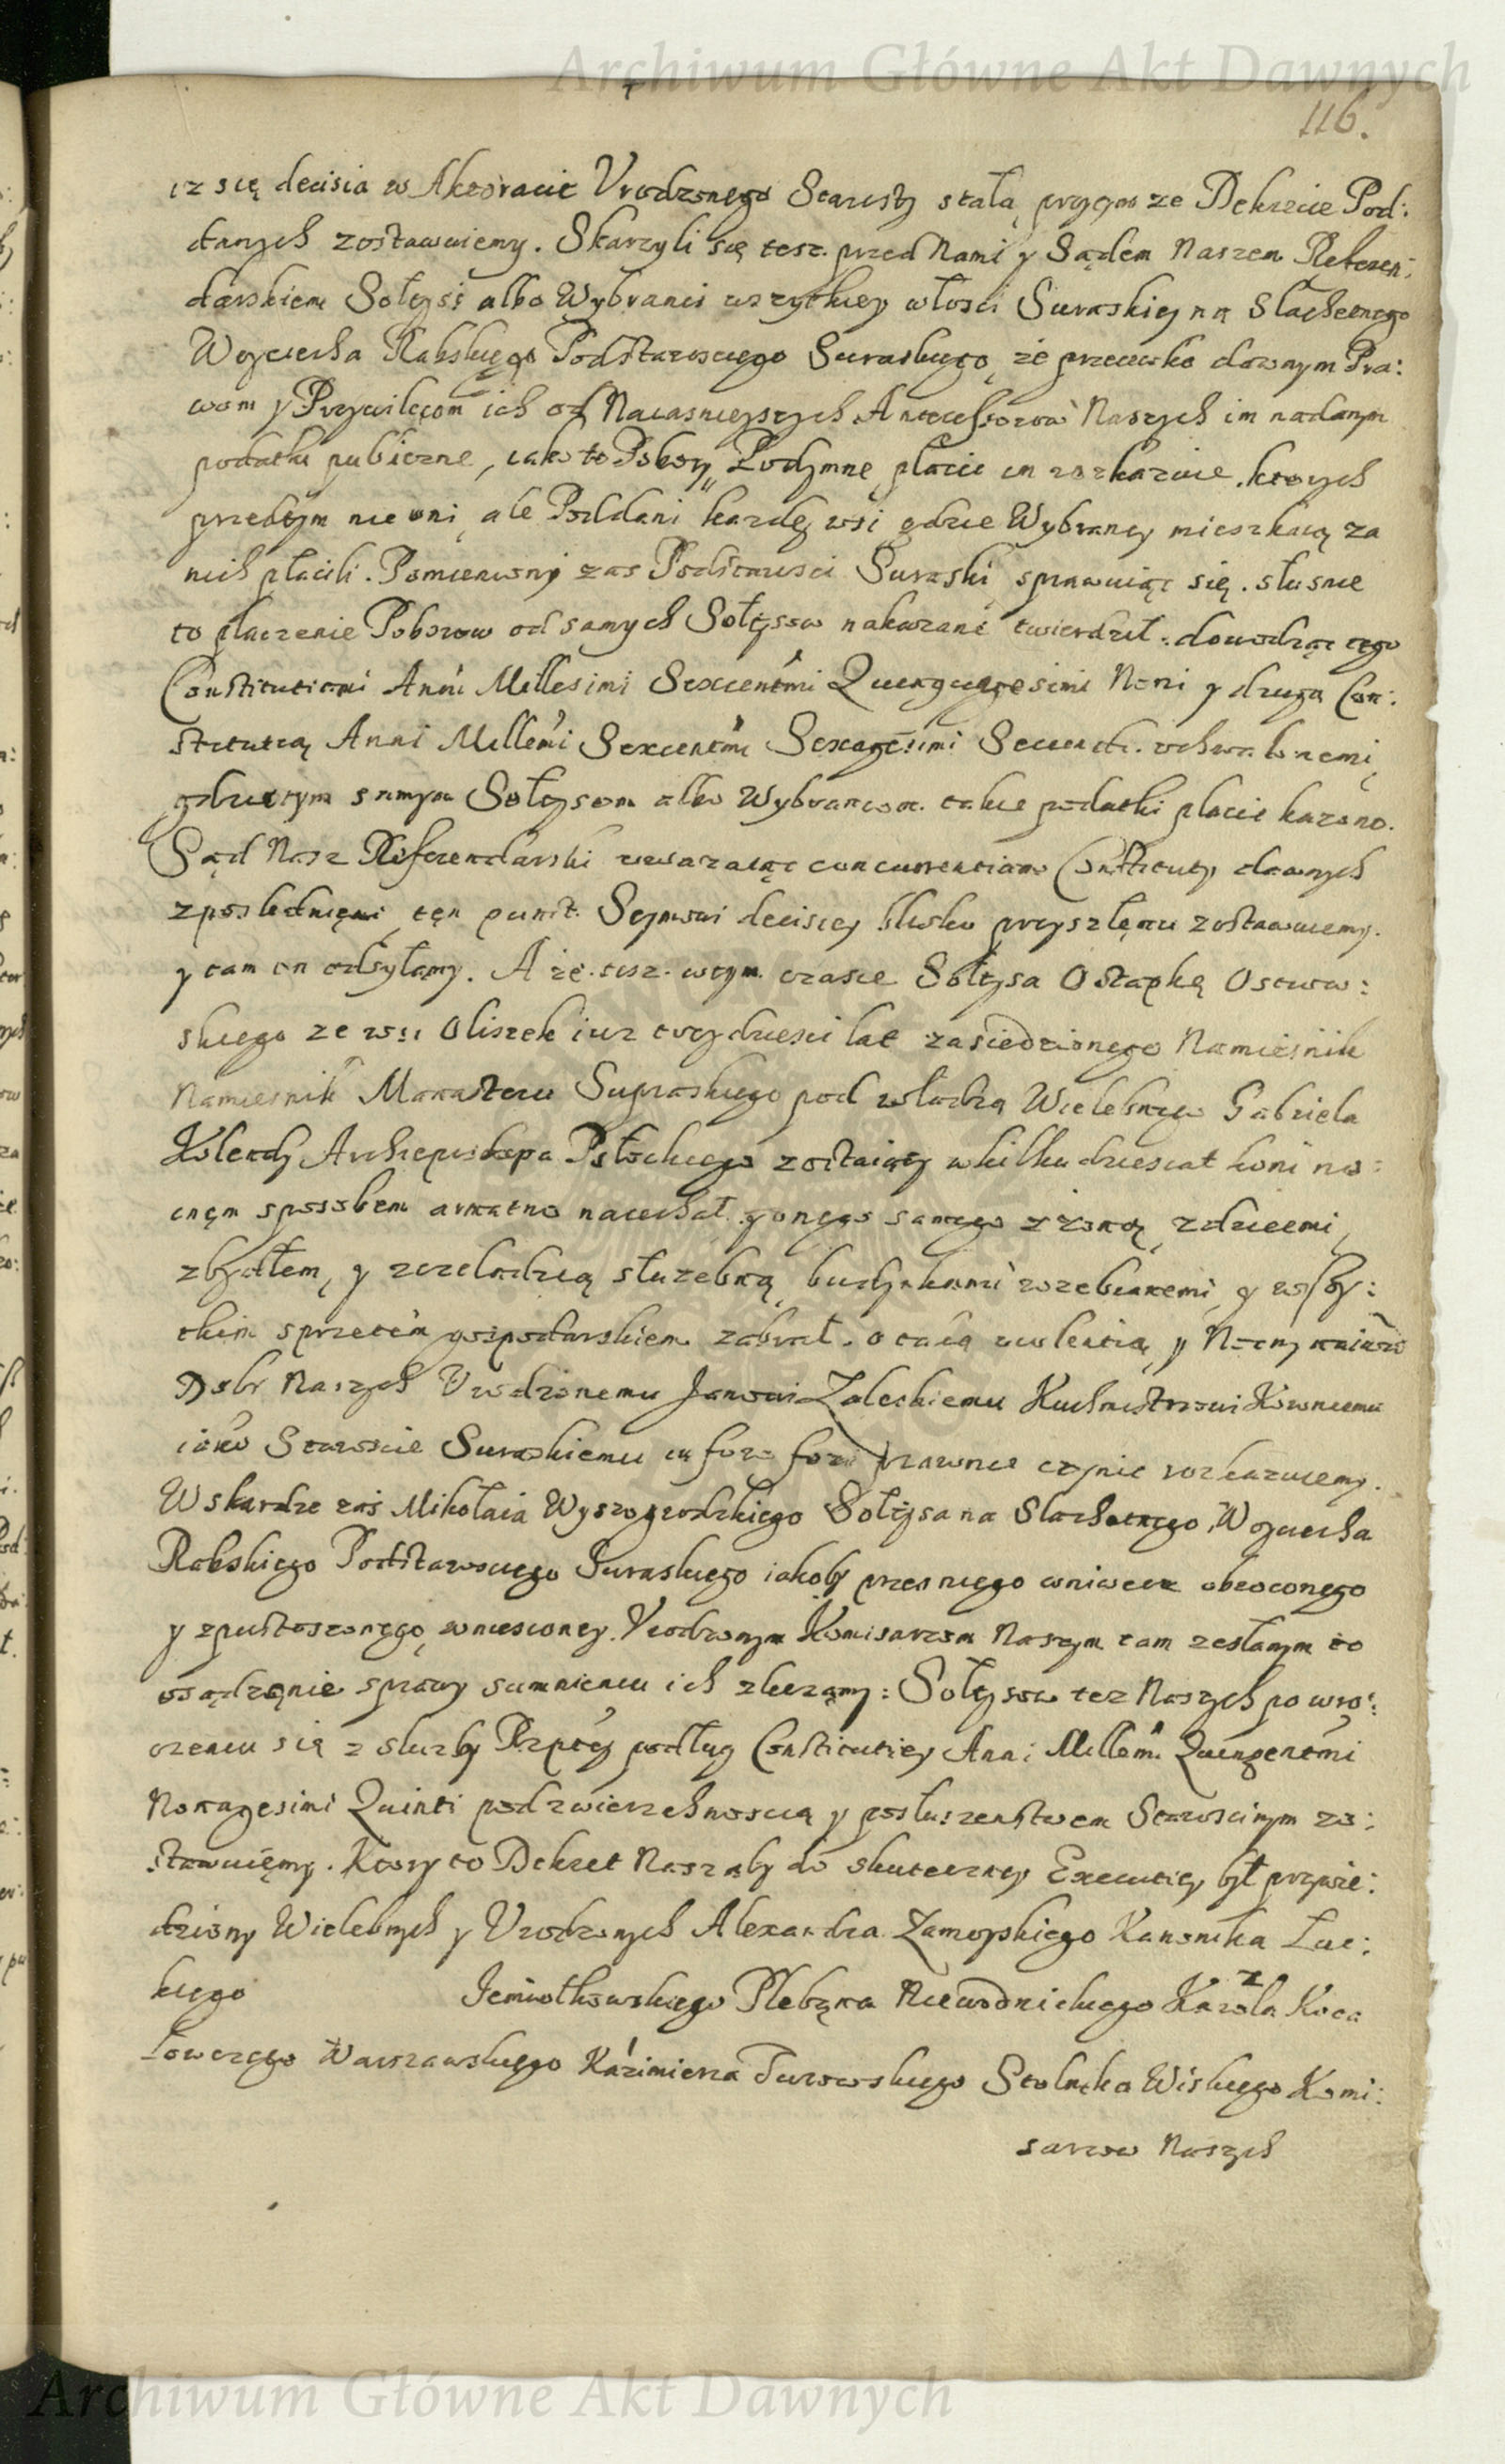 Archiwum Główne Akt Dawnych
116.
iz się decisia w Aktoracie Urodzonego Starosty stała, przytym ze Dekrecie Pod:
danych zostawuiemy. Skarzyli się tesz. przed Nami y Sądem Naszem Referen:
darskiem Sołtysi albo Wybranci wszytkiey włosci Suraskiey na Slachetnego
Woyciecha Rabskiego Podstarosciego Suraskiego, że przeciwko dawnym Pra:
wom y Przywileiom ich od Naiasnieyszych Antecessorow Naszych im nadanym
podatki publiczne, iako to Pobory, Podymne, płacic im roskazuie, ktorych
przedtym nie oni, ale Poddani kazdey wsi gdzie Wybrancy mieszkaią za
nich płacili. Pomieniony zas Podstarosci Suraski sprawuiąc się. słusnie
to płaczenie Poborow od samych Sołtysow nakazane twierdził. dowodząc tego
Constitutiami Anni Millesimi Sexcentmi Quinquagesimi Noni y drugą Con:
stitutią Anni Millemi Sexcentmi Sexagesimi Secundi. uchwalonemi,
gdzie tym samym Sołtysom albo Wybrancom. takie podatki płacic kazano.
Sąd Nasz Referendarski uwazaiąc concurrentiam Constituty dawnych
z poslednięmi, ten punct. Seymowi decisiey blisko przyszłęmu zostawuiemy.
y tam on odsyłamy. A że. tesz. w tym. czasie Sołtysa Ostapkę Ostrow:
skiego ze wsi Oliszek iuz trzydziesci lat zasiedzionego Namiesnik
Namiesnik Monasteru Supraskiego pod władzą Wielebnego Gabriela
Kolendy Archiepiskopa Połockiego zostaiący w kilkudziesiat koni no:
cnęm sposobem armatno naiechał y onego samego z żoną, z dziecmi,
z bydłem, y czeladzią służebną, budynkami rozebranemi, y wszy:
tkim sprzetem gospodarskiem zabrał. o taką violentią y
Dobr Naszych Urodzonemu Janowi Zaleskiemu Kuchmistrzowi Koronnemu
iako Staroscie Suraskiemu in foro fori prawnie czynic roskazuiemy.
W skardze zaś Mikołaia Wyszogrodzkiego Sołtysa na Slachetnego Woyciecha
Rabskiego Podstarosciego Suraskiego iakoby przes niego wniwecz obroconego
y zpustoszonego, wniesioney. Urodzonym Komisarzom Naszym tam zesłanym to
osądzęnie sprawy sumnieniu ich zlecamy: Sołtysow tez Naszych po wro:
czeniu się z sluzby Rzptey podług Constitutiey Anni Millemi Quingentmi
Nonagesimi Quinti pod zwierzchnoscią y posłuszenstwem Starościnym zo:
stawuięmy. Ktory to Dekret Nasz aby do skuteczney Executiey był przywie:
dziony Wielebnych y Urodzonych Alexandra Zamoyskiego Kanonika Łuc:
kiego Jemiołkowskiego Plebana Niewodnickiego Karola Koca
Łowczego Warszawskiego Kazimierza Turowskiego Stolnika Wiskiego Komi:
sarzow Naszych
Archiwum Główne Akt Dawnych